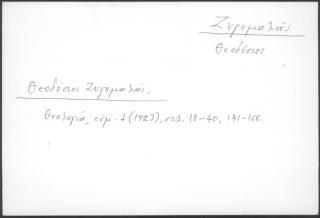 Ζυγομαλάς
Θεοδόσιος
Θεοδόσιος Ζυγομαλάς.
Θεολογία, τόμ. 1 (1923), σελ. 18-40, 141-166.